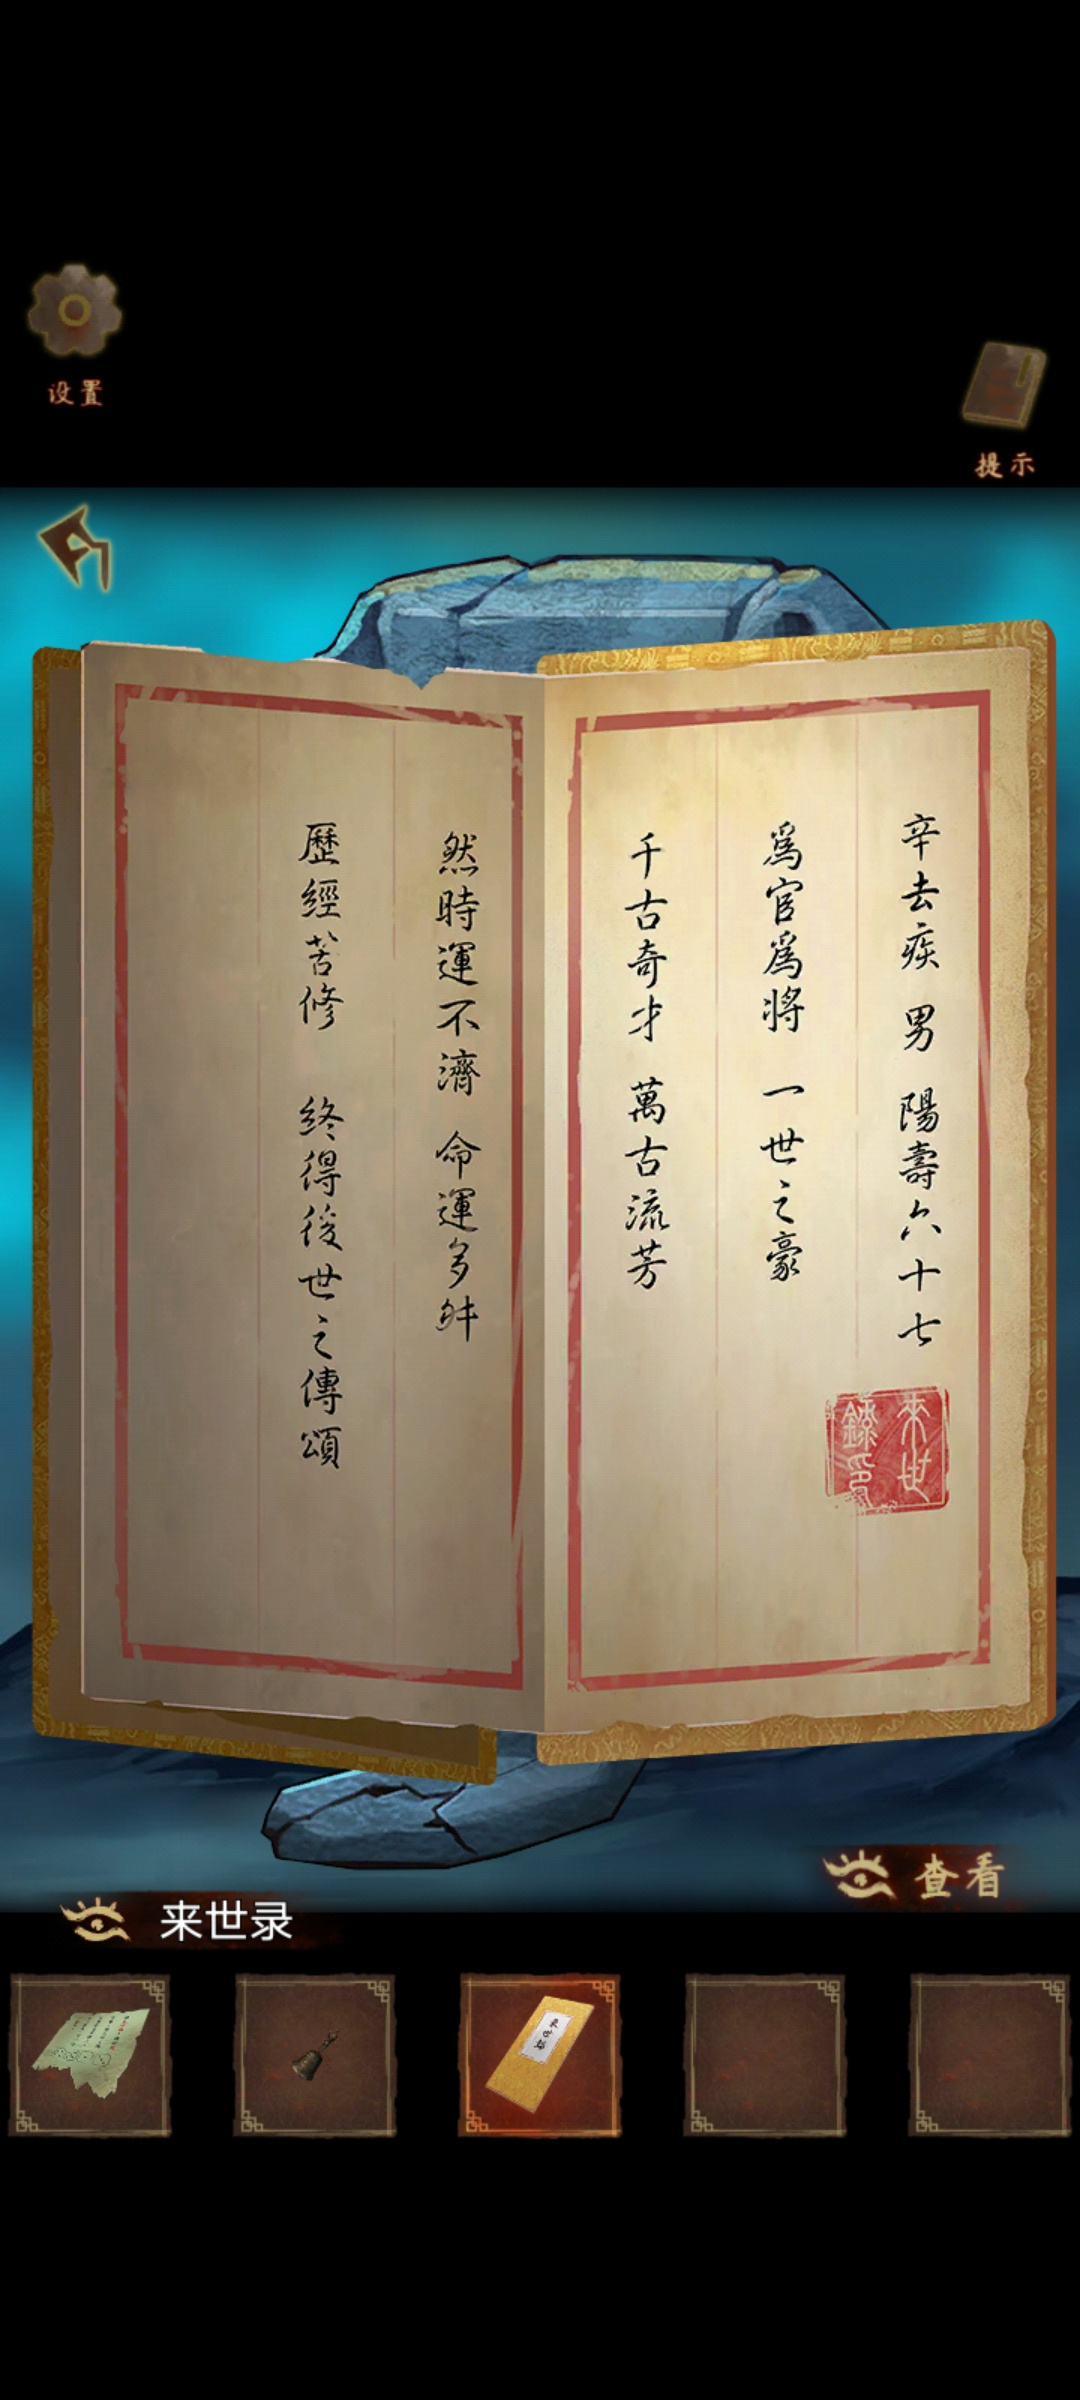 设置
提示
辛去疾 男 陽壽六十七
爲官爲將 一世之豪
千古奇才 萬古流芳
然時運不濟 命運多舛
歷經苦修 終得後世之傳頌
來世
錄印
查看
来世录
來世錄